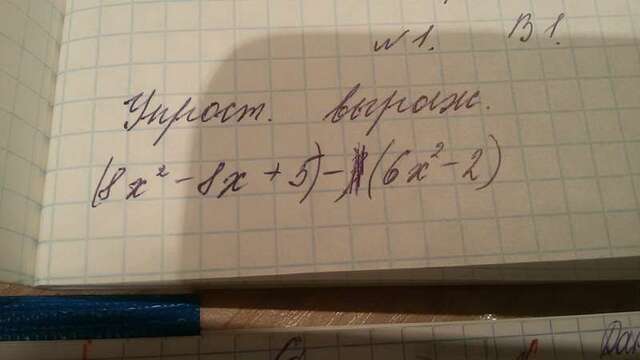 N 1. В 1.
Упрост. выраж.
(8x² - 8x + 5) - (6x² - 2)